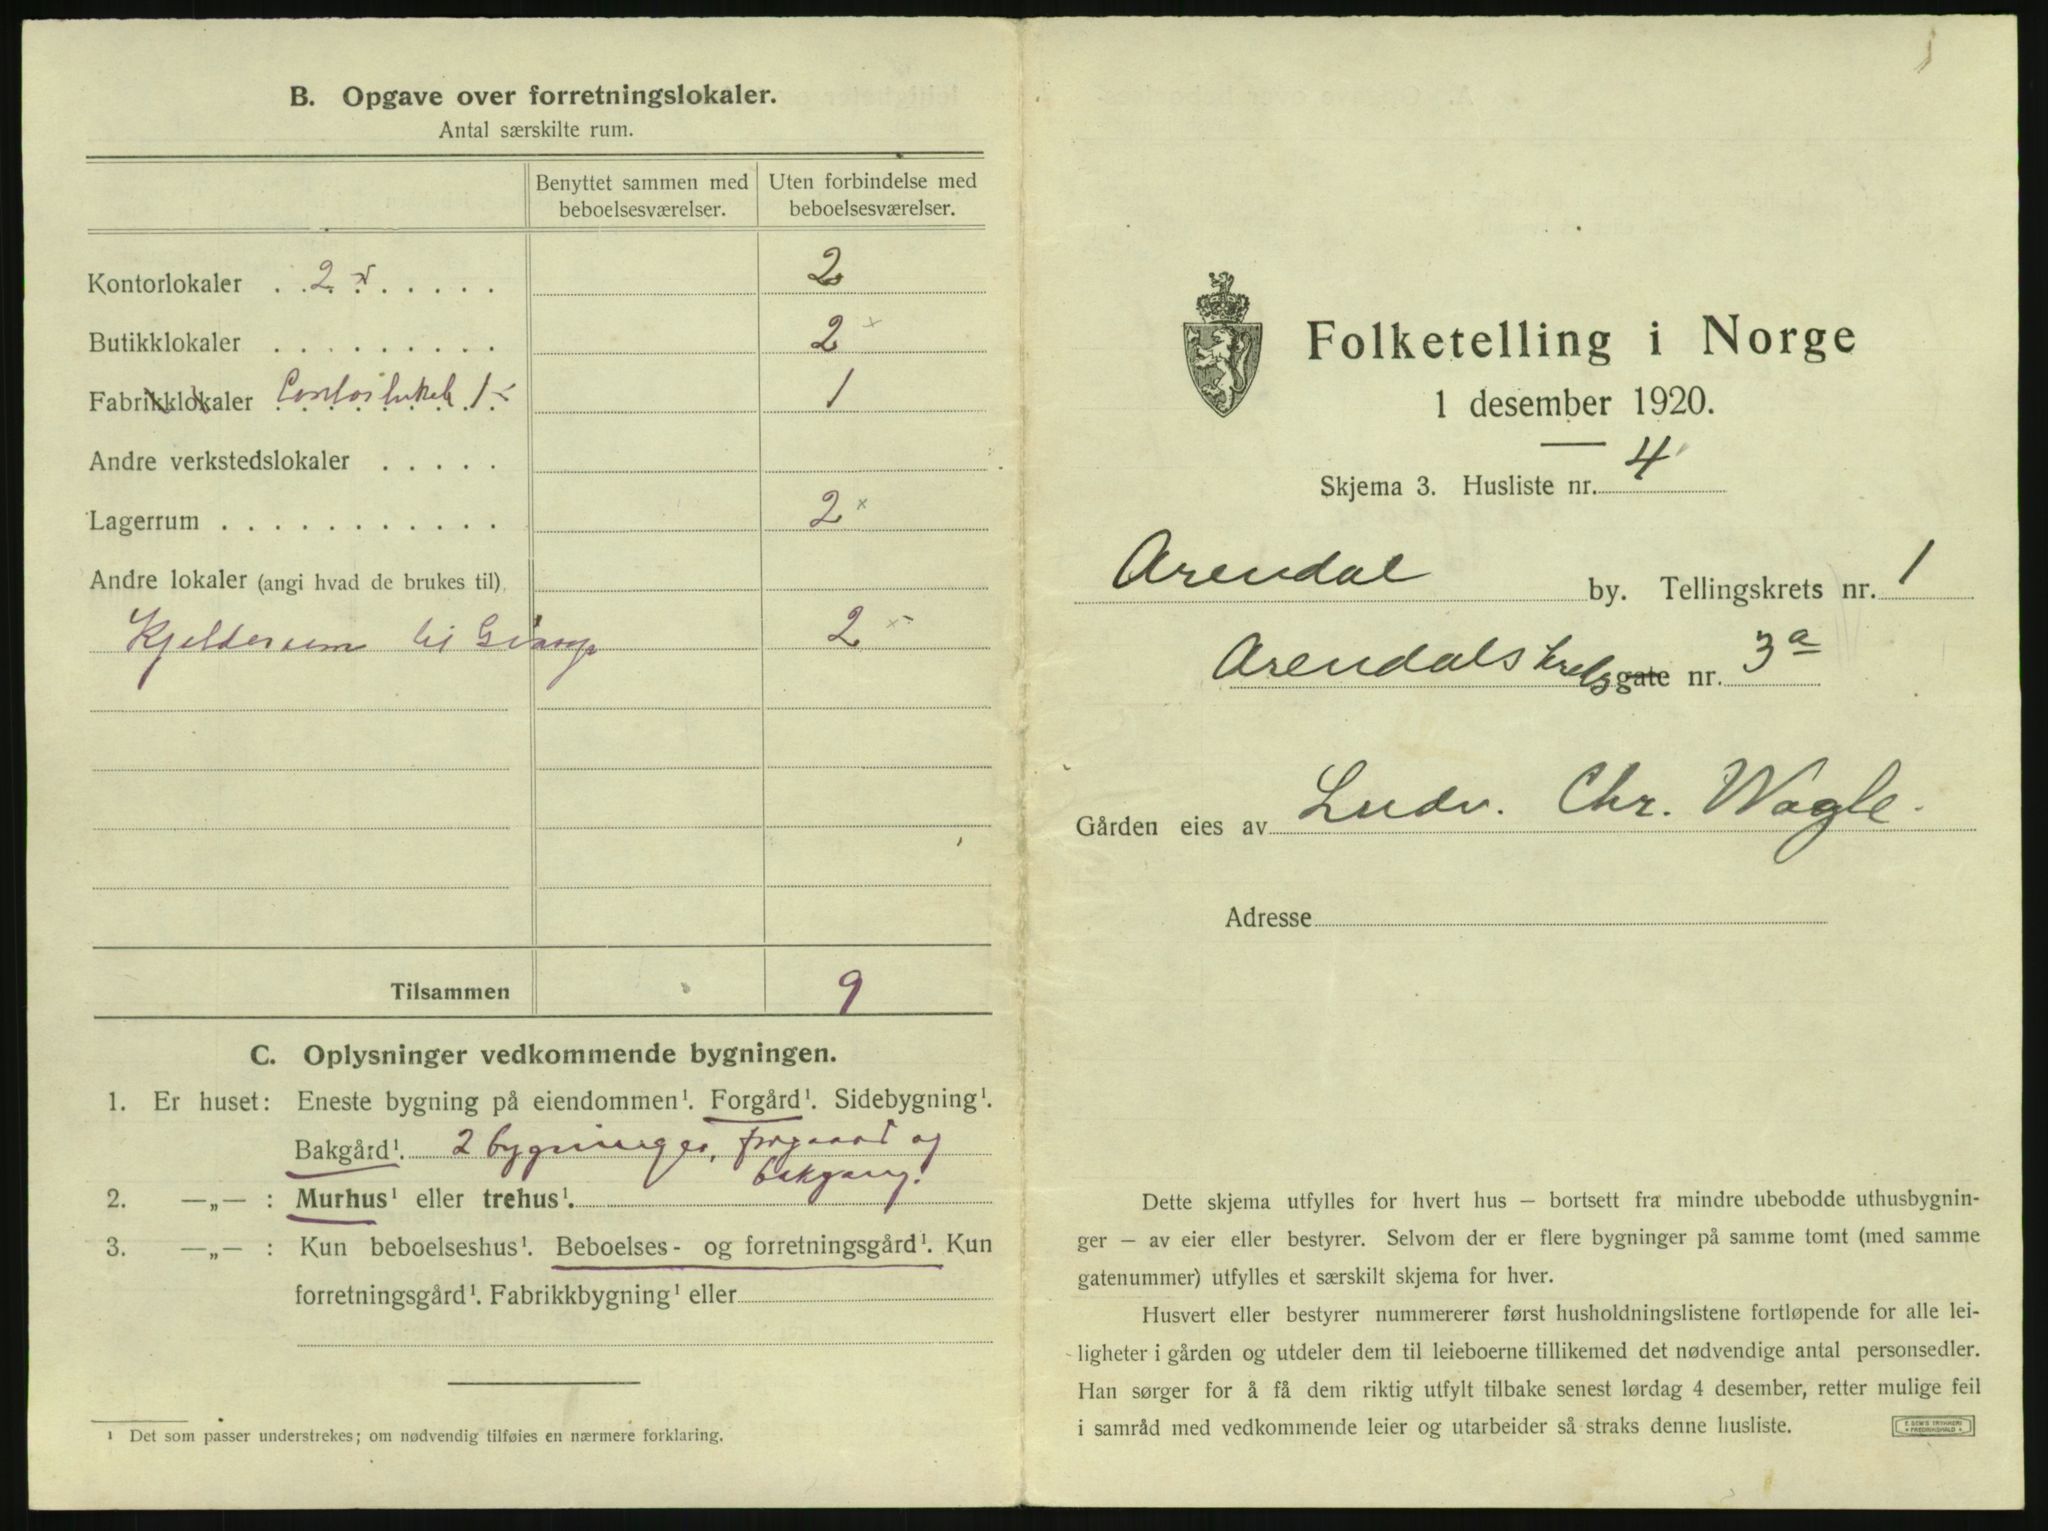 B. Opgave over forretningslokaler.
Antal særskilte rum.
Benyttet sammen med beboelsesværelser.
Uten forbindelse med beboelsesværelser.
Kontorlokaler . . 2 . . . . . . 2
Butikklokaler . . . . . . . . . 2 ×
Fabrikklokaler 1 1
Andre verkstedslokaler . . . . .
Lagerrum . . . . . . . . . . . 2 ×
Andre lokaler (angi hvad de brukes til).
Kjelderrum til 2 ×
Tilsammen 9
C. Oplysninger vedkommende bygningen.
1. Er huset: Eneste bygning på eiendommen¹. Forgård¹. Sidebygning¹.
Bakgård¹. 2 bygninger, forgaard og
bakgang.
2. —„— : Murhus¹ eller trehus¹.
3. —„— : Kun beboelseshus¹. Beboelses- og forretningsgård¹. Kun
forretningsgård¹. Fabrikkbygning¹ eller
¹ Det som passer understrekes; om nødvendig tilføies en nærmere forklaring.
Folketelling i Norge
1 desember 1920.
Skjema 3. Husliste nr. 4
Arendal by. Tellingskrets nr. 1
Arendalskrets gate nr. 3a
Gården eies av Ludv. Chr. Wagle.
Adresse
Dette skjema utfylles for hvert hus — bortsett fra mindre ubebodde uthusbygnin-
ger — av eier eller bestyrer. Selvom der er flere bygninger på samme tomt (med samme
gatenummer) utfylles et særskilt skjema for hver.
Husvert eller bestyrer nummererer først husholdningslistene fortløpende for alle lei-
ligheter i gården og utdeler dem til leieboerne tillikemed det nødvendige antal personsedler.
Han sørger for å få dem riktig utfylt tilbake senest lørdag 4 desember, retter mulige feil
i samråd med vedkommende leier og utarbeider så straks denne husliste.
E. SEM'S TRYKKERI
FREDRIKSHALD